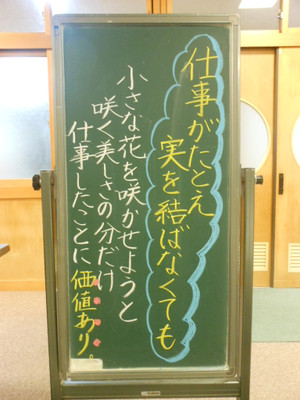 仕事がたとえ
実を結ばなくても
小さな花を咲かせようと
咲く美しさの分だけ
仕事したことに価値あり。